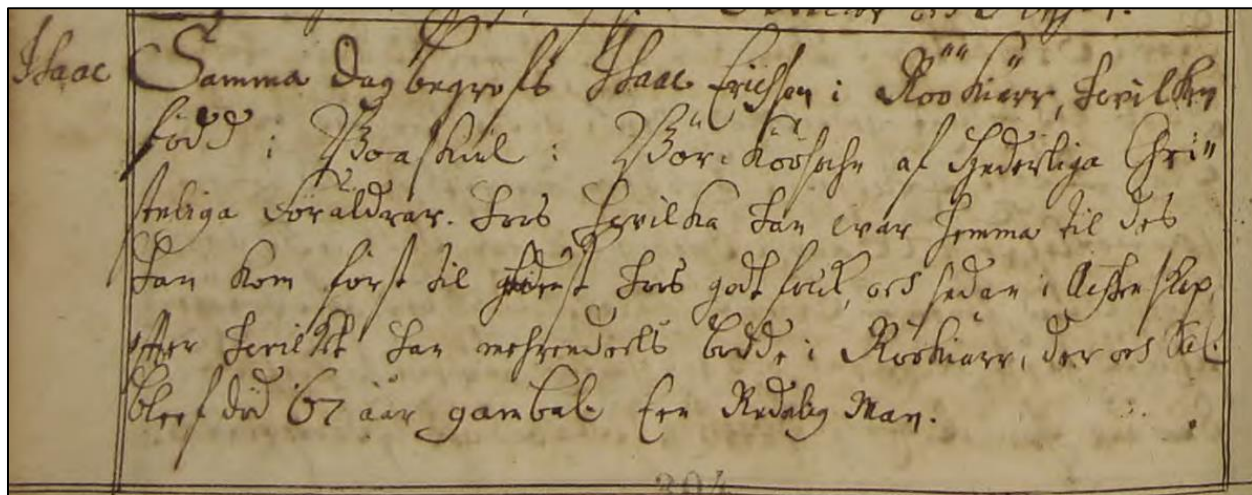 Isaac
Samma dag begrofs Isaac Ericsson i Röökiärr, hvilken
född i Boaskiul i Börcköösochn af hederliga Chri„
steliga Föräldrar. hoos hvilka han war hemma til des
han kom först til tienst hoos godt folck, och sedan iÄchtenskap,
effter hvilket han mehrendeels bodde i Röökiärr, der och Sal:
bleef död 67 åår gambal. Een Redelig Man.
304